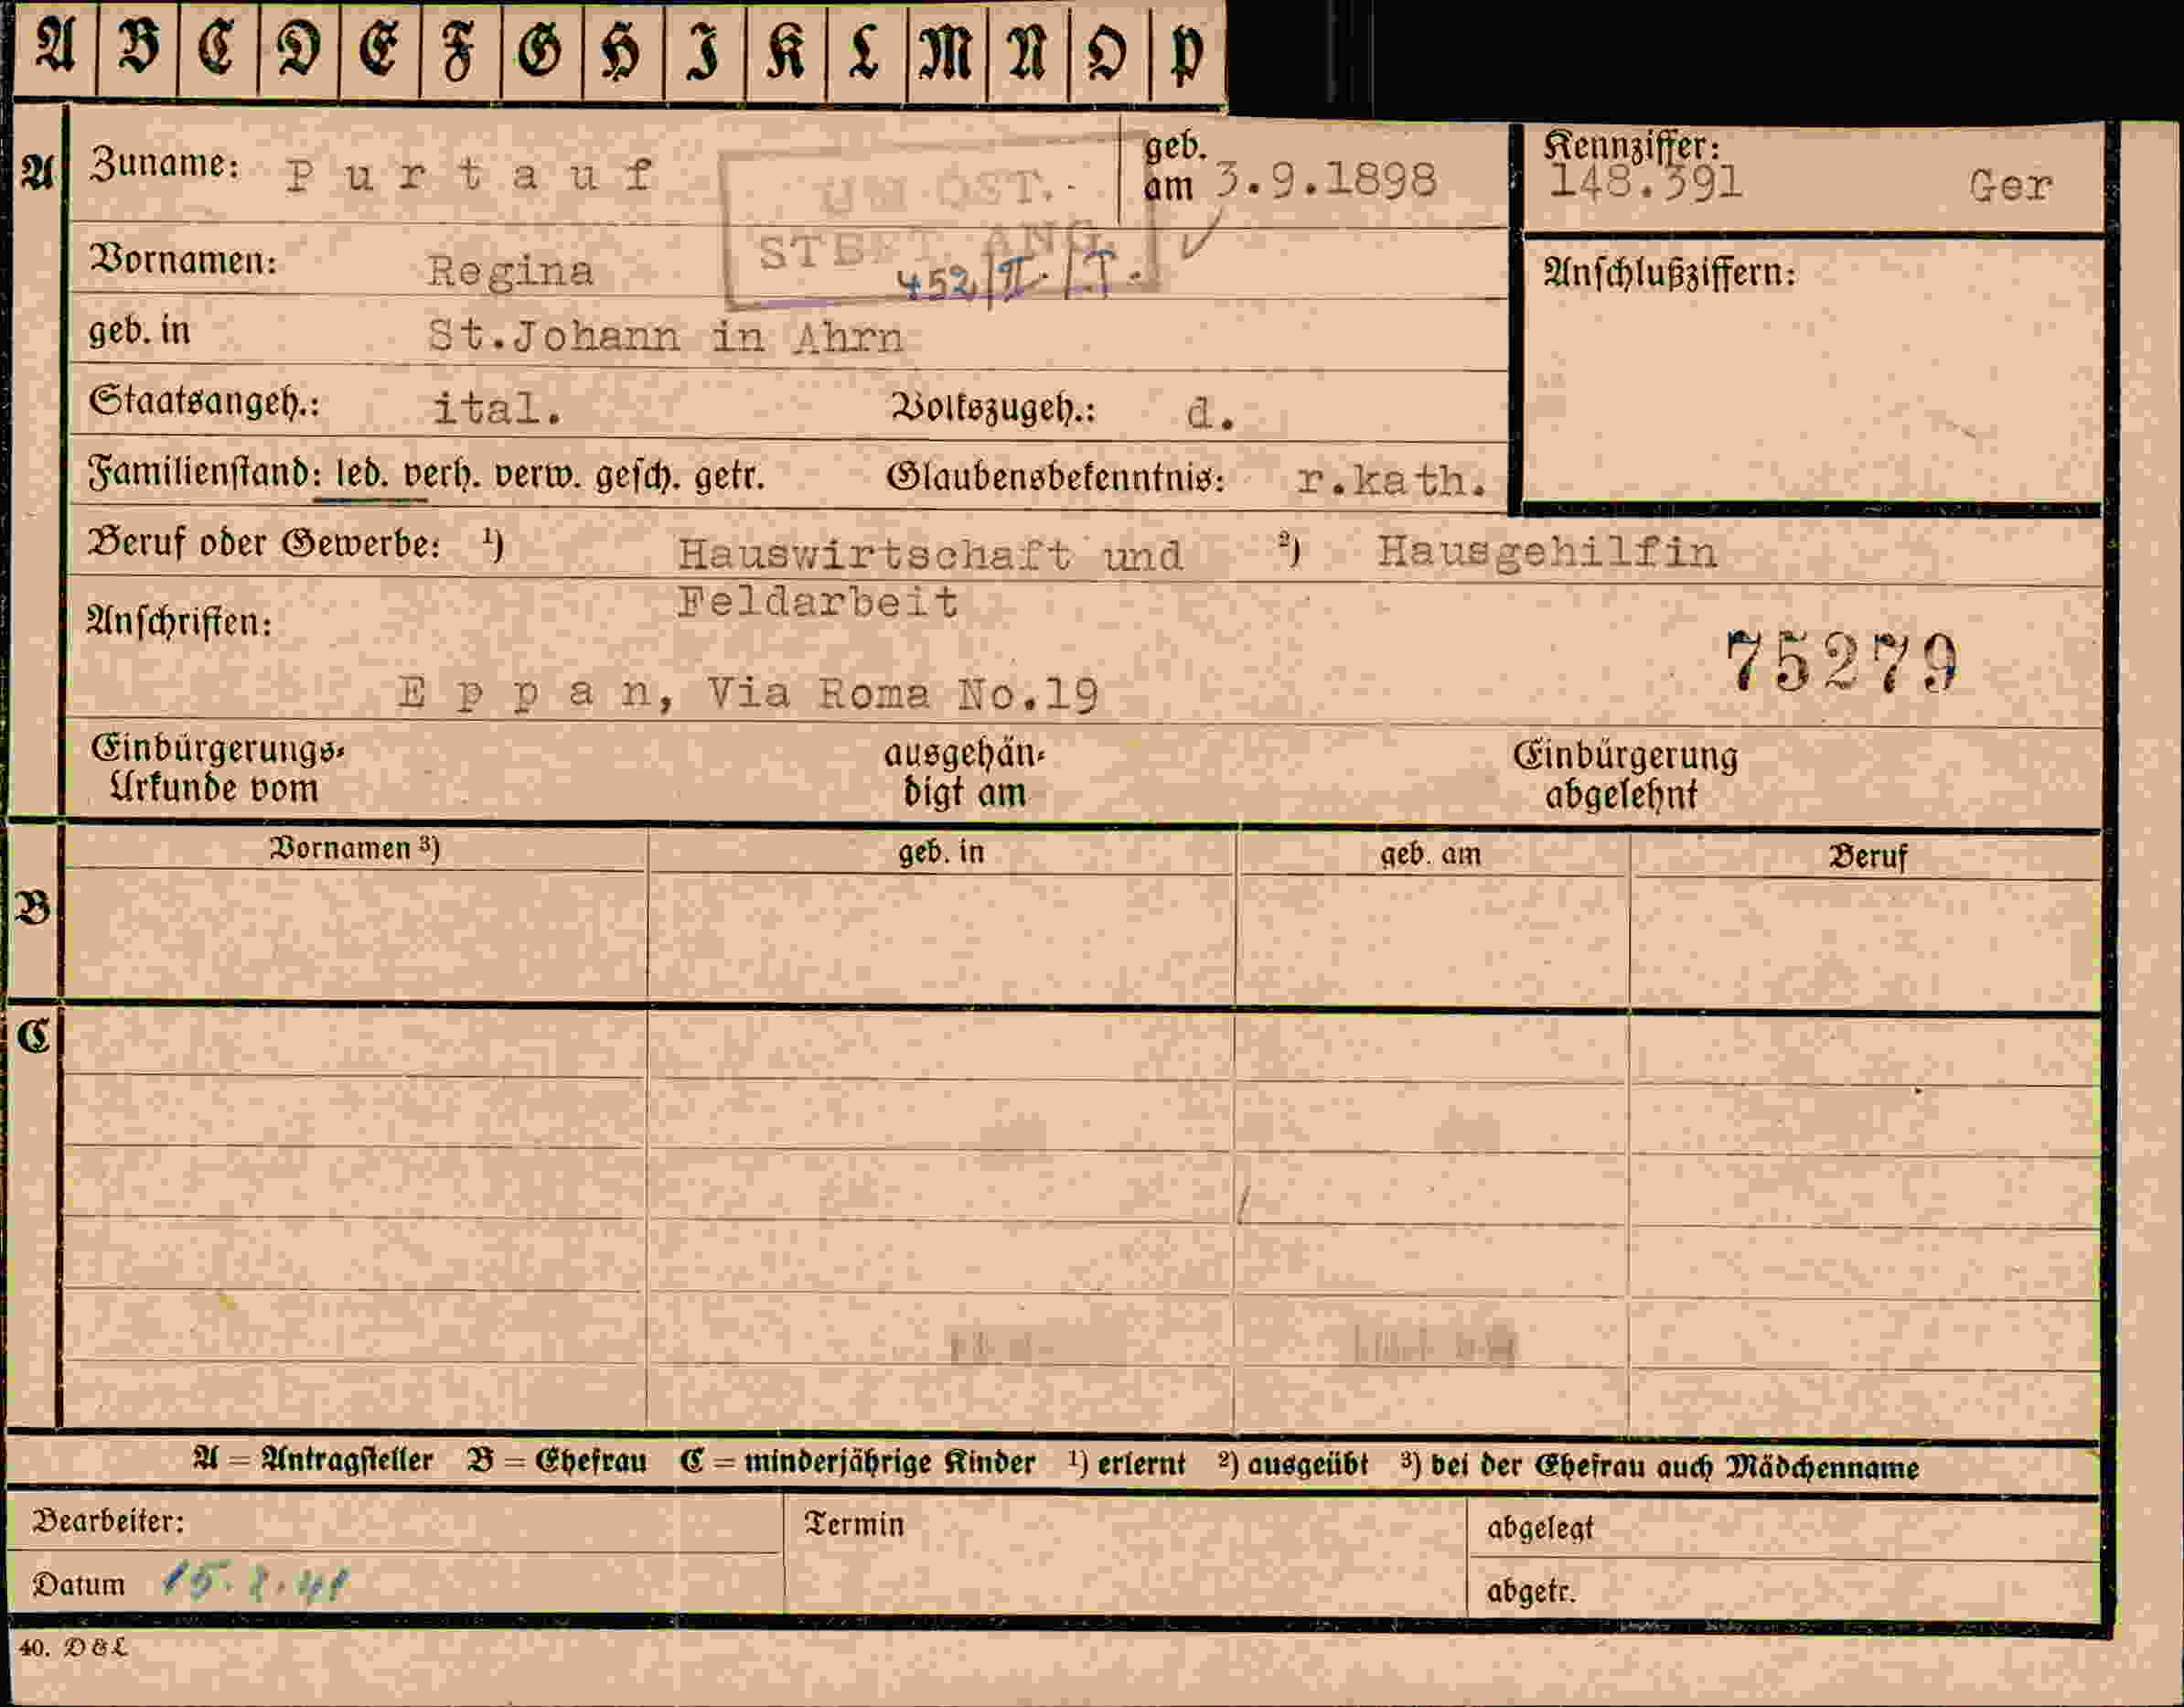 A B C D E F G H I K L M N O P
A Zuname: Purtauf geb. am 3.9.1898 Kennziffer: 148.391 Ger
UM ÖST.
Vornamen: Regina ANG. 452/II./T. Anschlußziffern:
geb. in St.Johann in Ahrn
Staatsangeh.: ital. Volkszugeh.: d.
Familienstand: led. verh. verw. gesch. getr. Glaubensbekenntnis: r.kath.
Beruf oder Gewerbe: 1) Hauswirtschaft und 2) Hausgehilfin
Feldarbeit
Anschriften:
75279
Eppan, Via Roma No.19
Einbürgerungs- ausgehän- Einbürgerung
Urkunde vom digt am abgelehnt
Vornamen 3) geb. in geb. am Beruf
B
C
A = Antragsteller B = Ehefrau C = minderjährige Kinder 1) erlernt 2) ausgeübt 3) bei der Ehefrau auch Mädchenname
Bearbeiter: Termin abgelegt
Datum abgetr.
40. D & L